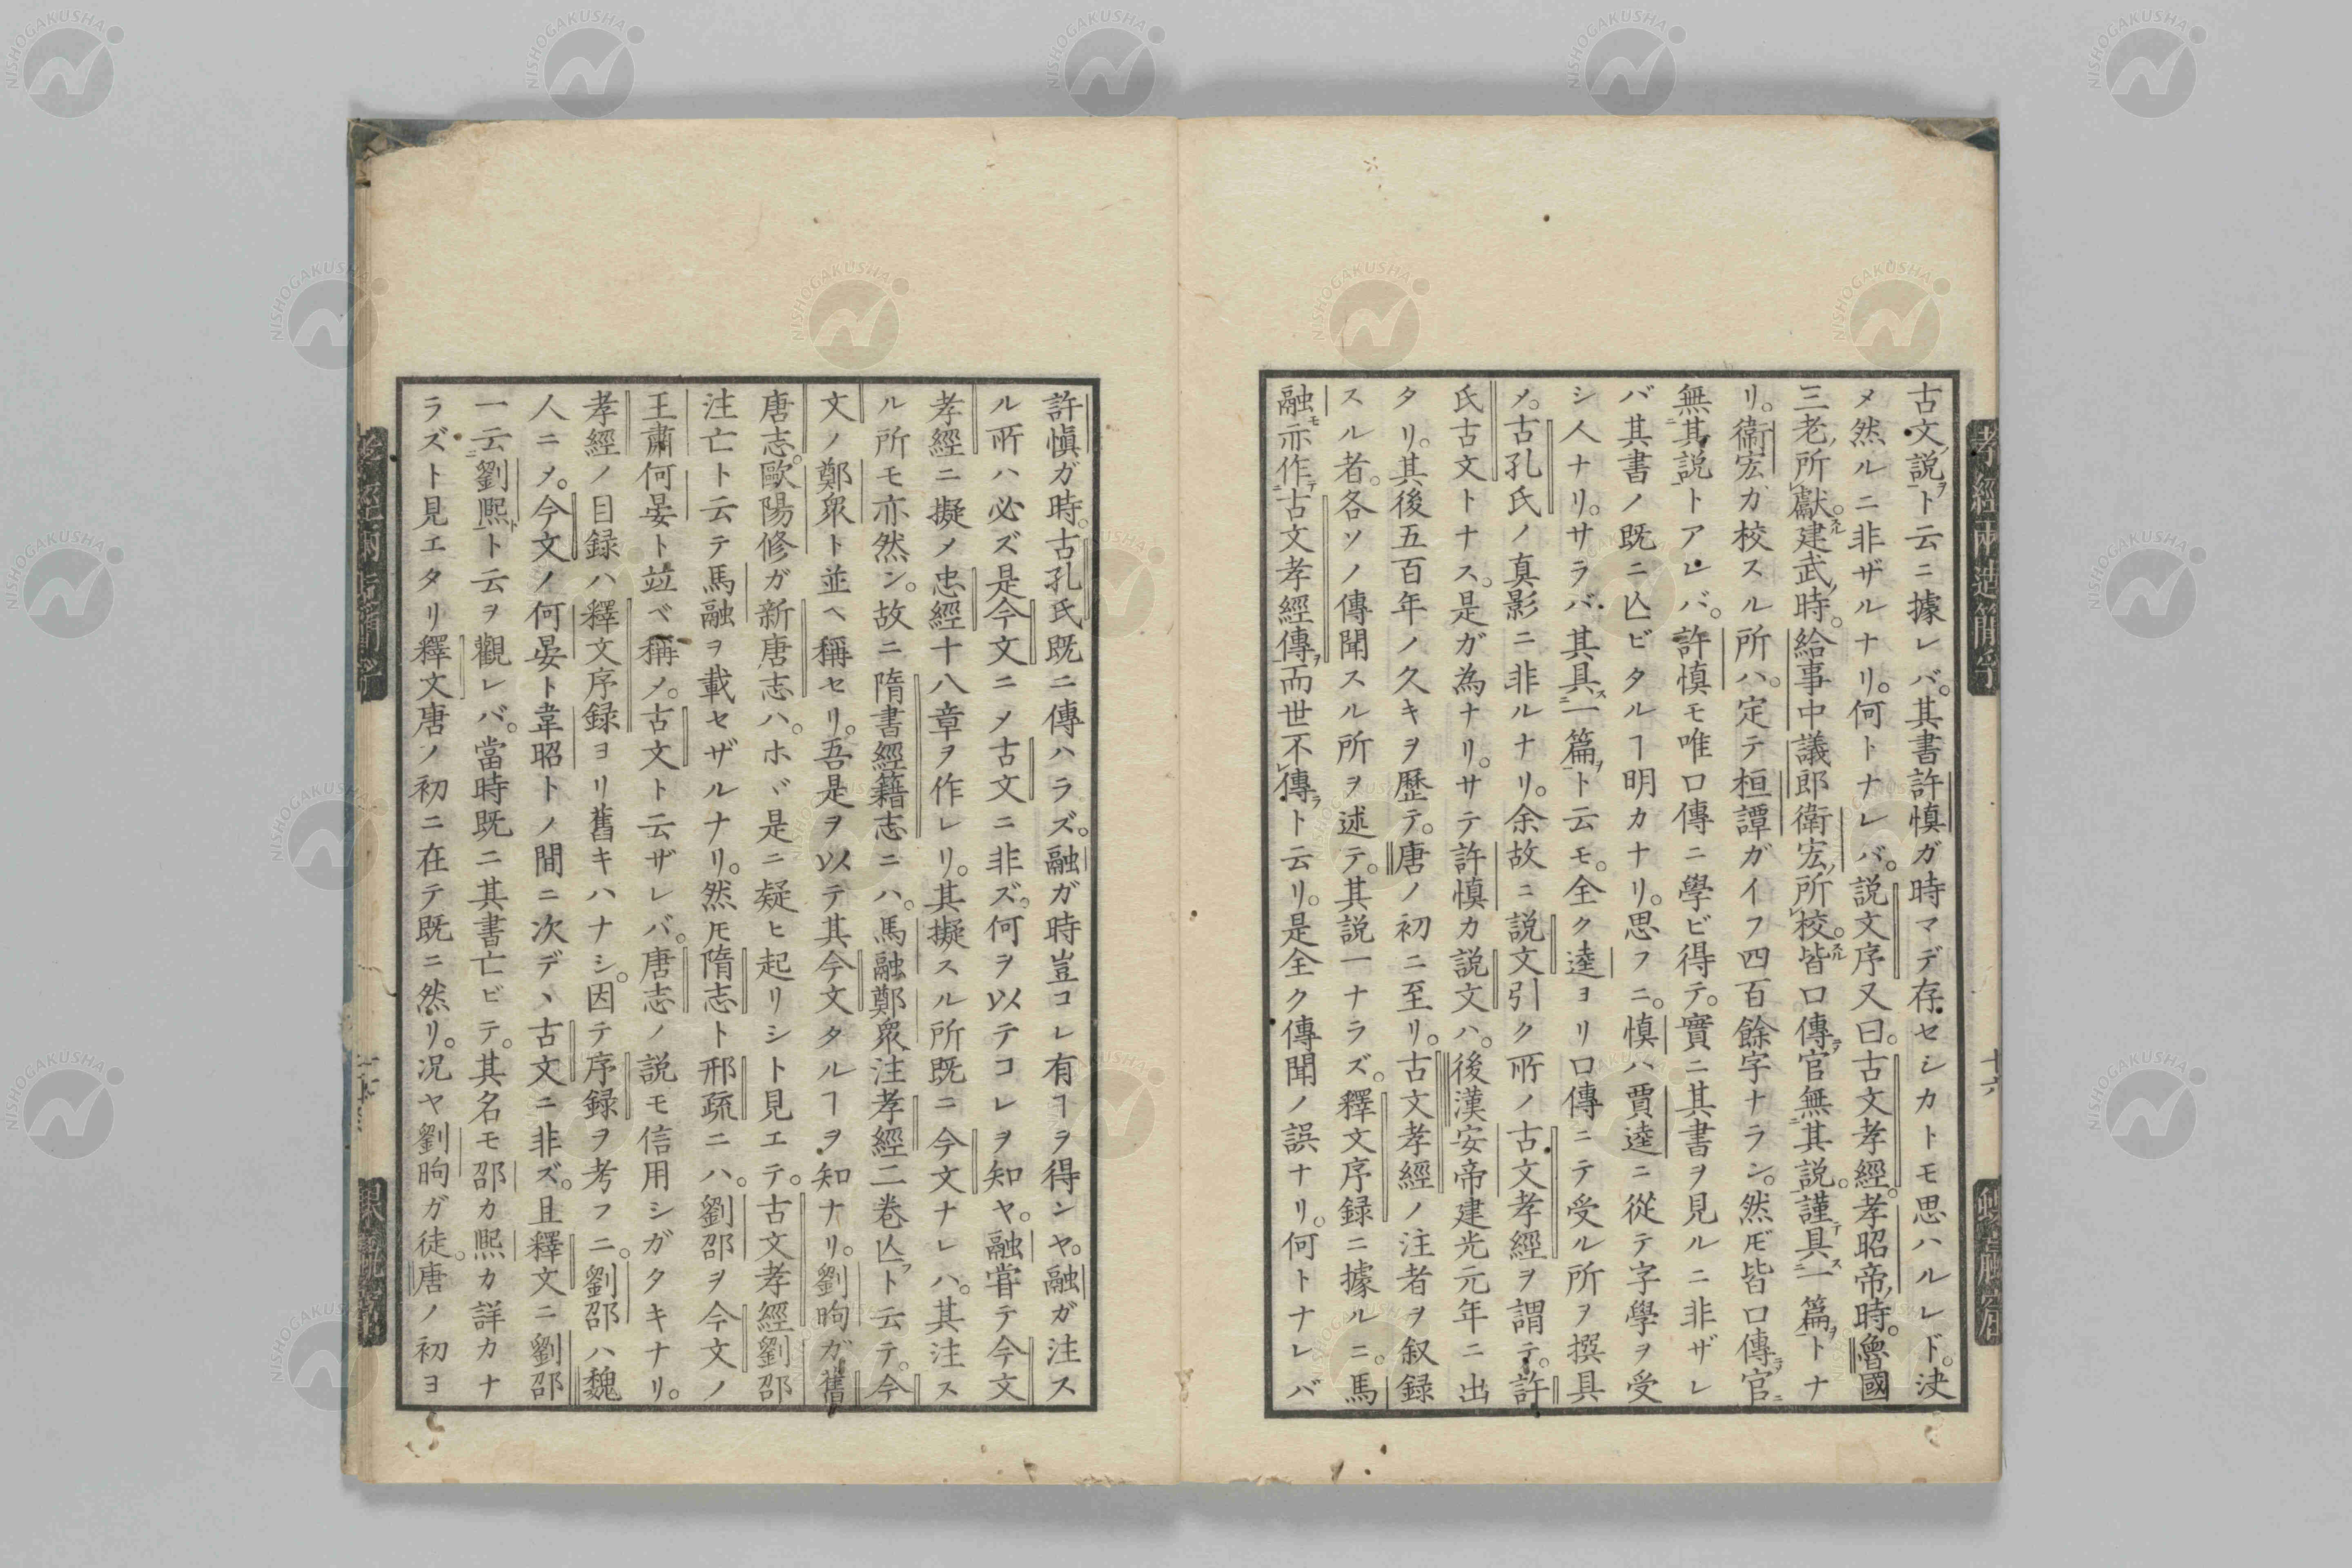 古文説ト云ニ據レバ。其書許慎ガ時マデ存セシカトモ思ハルレド。決
メ然ルニ非ザルナリ。何トナレバ。説文序又曰。古文孝經。孝昭帝ノ時。魯國
三老ノ所獻。建武ノ時。給事中議郎衛宏ノ所校。皆口傳官無其説。謹具一篇トナ
リ。衛宏ガ校スル所ハ。定テ桓譚ガイフ四百餘字ナラン。然𪜈皆口傳官
無其説トアレバ。許慎モ唯口傳ニ學ビ得テ。實ニ其書ヲ見ルニ非ザレ
バ其書ノ既ニ亾ビタルヿ明カナリ。思フニ。慎ハ賈逵ニ從テ字學ヲ受
シ人ナリ。サラバ其具一篇ト云モ。全ク逵ヨリ口傳ニテ受ル所ヲ撰具
メ。古孔氏ノ真影ニ非ルナリ。余故ニ説文引ク所ノ古文孝經ヲ謂テ。許
氏古文トナス。是ガ為ナリ。サテ許慎カ説文ハ。後漢安帝建光元年ニ出
タリ。其後五百年ノ久キヲ歷テ。唐ノ初ニ至リ。古文孝經ノ注者ヲ叙録
スル者。各ソノ傳聞スル所ヲ述テ。其説一ナラズ。釋文序録ニ據ルニ。馬
融亦作古文孝經傳而世不傳ト云リ。是全ク傳聞ノ誤ナリ。何トナレバ
許慎ガ時。古孔氏既ニ傳ハラズ。融ガ時豈コレ有ヿヲ得ンヤ。融ガ注ス
ル所ハ必ズ是今文ニメ古文ニ非ズ。何ヲ以テコレヲ知ヤ。融甞テ今文
孝經ニ擬メ忠經十八章ヲ作レリ。其擬スル所既ニ今文ナレハ。其注ス
ル所モ亦然ン。故ニ隋書經籍志ニハ。馬融鄭衆注孝經二巻亾ト云テ。今
文ノ鄭衆ト並ヘ稱セリ。吾是ヲ以テ其今文タルヿヲ知ナリ。劉昫ガ舊
唐志。歐陽修ガ新唐志ハ。ホヾ是ニ疑ヒ起リシト見エテ。古文孝經劉邵
注亡ト云テ馬融ヲ載セザルナリ。然𪜈隋志ト邢疏ニハ。劉邵ヲ今文ノ
王肅何晏ト竝ベ稱メ。古文ト云ザレバ。唐志ノ説モ信用シガタキナリ。
孝經ノ目録ハ釋文序録ヨリ舊キハナシ。因テ序録ヲ考フニ。劉邵ハ魏
人ニメ。今文ノ何晏ト韋昭トノ間ニ次デヽ古文ニ非ズ。且釋文ニ劉邵
一云劉熙ト云ヲ觀レバ。當時既ニ其書亡ビテ。其名モ邵カ熙カ詳カナ
ラズト見エタリ釋文唐ノ初ニ在テ既ニ然リ。況ヤ劉昫ガ徒。唐ノ初ヨ
孝經兩造簡孚
十六